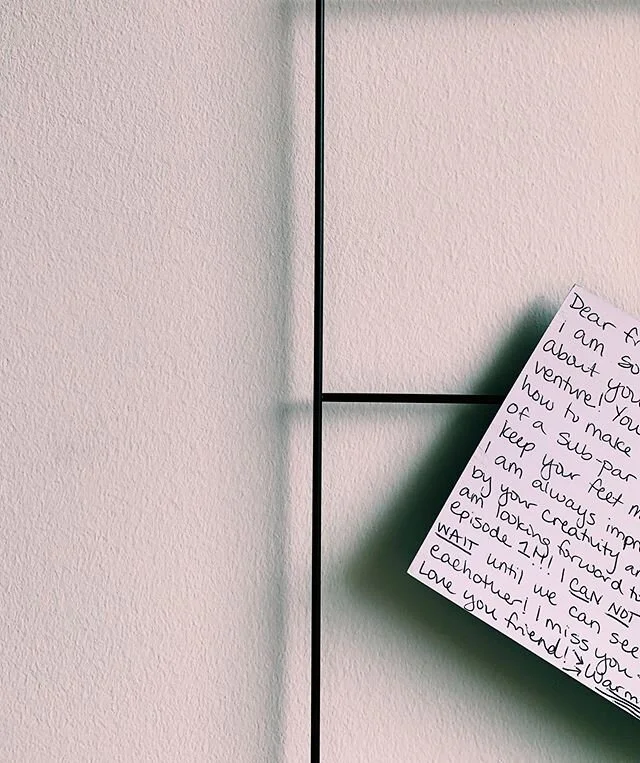 Dear fr
I am so
about you
venture! You
how to make
of a sub-par
keep your feet
I am always impr
by your creativity an
am looking forward to
episode 1!!! I CAN NOT
WAIT until we can see
eachother! I miss you
Love you friend!
Warm